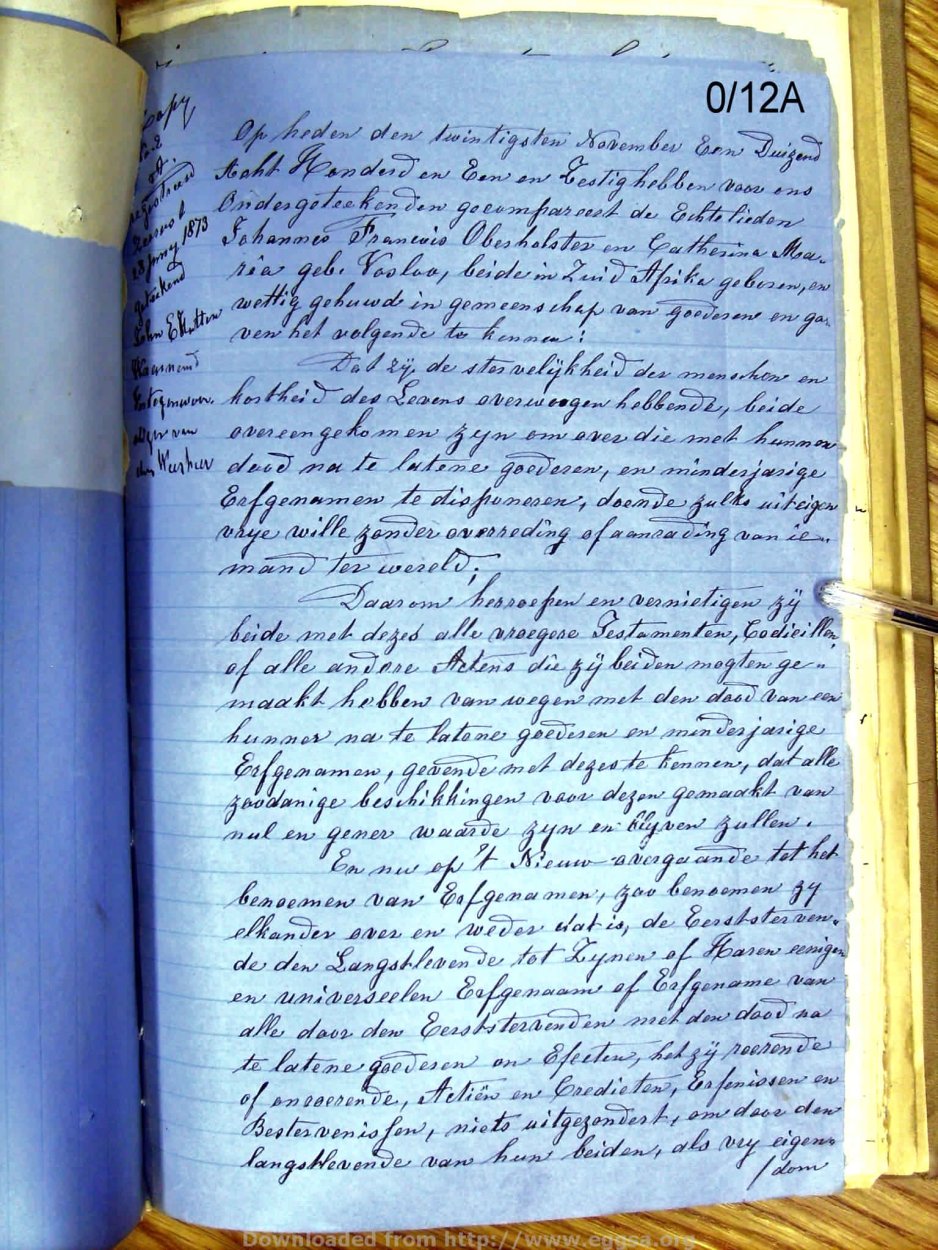 0/12A
Copy
No 2
geregistreerd
Zeerust
28 Juny 1873
geteekend
John E Hutton
Waarnemend
van
den Weesheer
Op heden den twintigsten November Een Duizend
Acht Honderd en Een en Zestig hebben voor ons
Ondergeteekenden gecompareert de Echtelieden
Johannes Francois Oberholster en Catherina Ma„
ria geb. Vosloo, beide in Zuid Afrika geboren, en
wettig gehuwde in gemeenschap van goederen en ga„
ven het volgende te kennen:
Dat zij, de stervelijkheid der menschen en
kortheid des Levens overwoogen hebbende, beide
overeengekomen zyn om over die met hunner
dood na te latene goederen, en minderjarige
Erfgenamen te disponeren, doende zulks uit eigen
vrye wille zonder overreding of aanrading van ie„
mand ter wereld.
Daarom herroepen en vernietigen zij
beide met dezes alle vroegere Testamenten, Codicillen
of alle andere Actens die zij beiden mogten ge„
maakt hebben van wegen met den dood van een
hunner na te latene goederen en minderjarige
Erfgenamen, gevende met dezes te kennen, dat alle
zoodanige beschikkingen voor dezen gemaakt van
nul en gener waarde zyn en blyven zullen.
En nu op 't Nieuw overgaande tot het
benoemen van Erfgenamen, zoo benoemen zy
elkander over en weder dat is, de Eerststerven„
de den Langstlevende tot Zynen of Haren eenigen
en universeelen Erfgenaam of Erfgename van
alle door den Eerststervenden met den dood na
te latene goederen en Efecten, het zij roerende
of onroerende, Actiën en Credieten, Erfenissen en
Bestervenissen, niets uitgezondert, om door den
langstlevende van hun beiden, als vry eigen„
/dom
Downloaded from http://www.eggsa.org